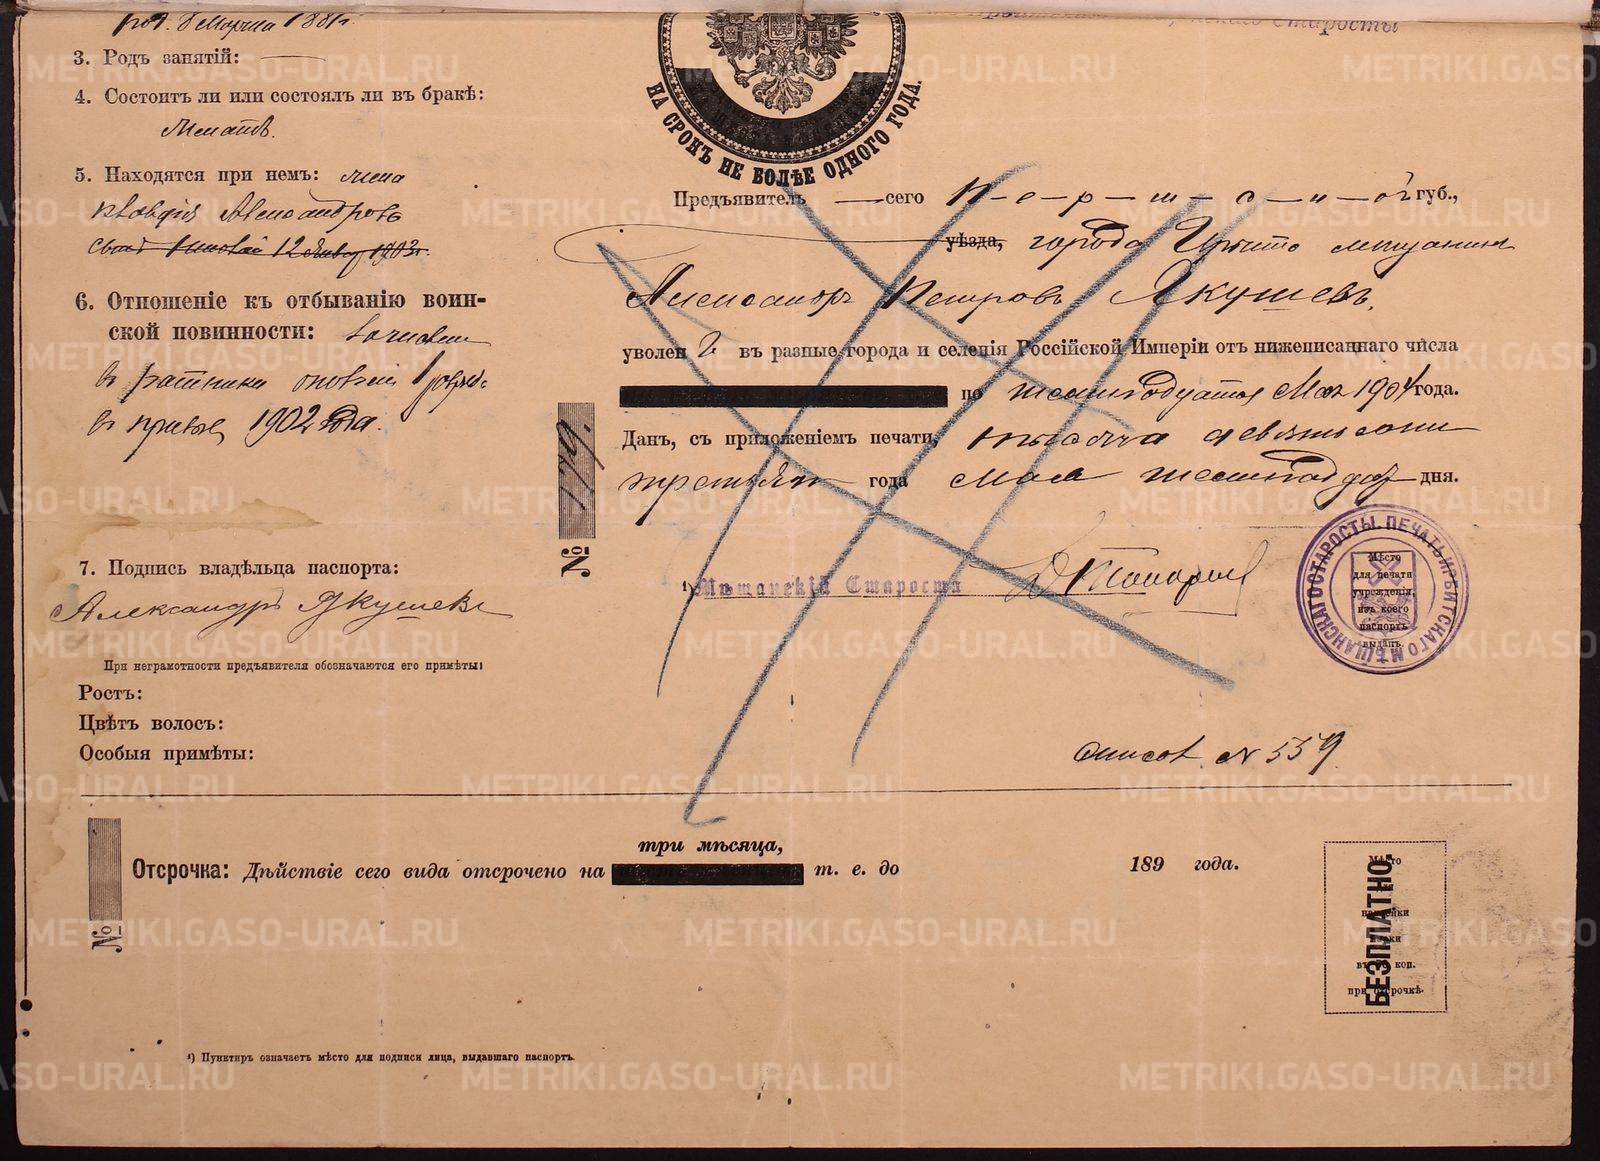 род. 8 Марта 1881 г.
3. Родъ занятій: —
4. Состоитъ ли или состоялъ ли въ бракѣ:
Женатъ.
5. Находятся при немъ: жена
Клавдія Александров.
12 Январ. 1903 г.
6. Отношеніе къ отбыванію воин-
ской повинности: зачислен
в ратники
в призыв 1902 года.
7. Подпись владѣльца паспорта:
Александръ Якушевъ
При неграмотности предъявителя обозначаются его примѣты:
Ростъ:
Цвѣтъ волосъ:
Особыя примѣты:
Старосты
НА СРОКЪ НЕ БОЛѢЕ ОДНОГО ГОДА.
Предъявитель — сего П-е-р-м-с-к-ой губ.,
уѣзда, города Ирбита мѣщанинъ
Александръ Петровъ Якушевъ,
уволенъ въ разные города и селенія Россійской Имперіи отъ нижеписаннаго числа
по шестнадцатое Мая 1904 года.
Данъ, съ приложеніемъ печати, тысяча девятьсотъ
третьяго года Мая шестнадцат. дня.
№ 179.
¹) Мѣщанскій Староста
ПЕЧАТЬ ИРБИТСКАГО МѢЩАНСКАГО СТАРОСТЫ
Мѣсто
для печати
учрежденія,
изъ коего
паспортъ
выданъ.
списоч. № 559.
№
три мѣсяца,
Отсрочка: Дѣйствіе сего вида отсрочено на т. е. до 189 года.
Мѣсто
марки
въ коп.
при отсрочкѣ.
БЕЗПЛАТНО
¹) Пунктиръ означаетъ мѣсто для подписи лица, выдавшаго паспортъ.
METRIKI.GASO-URAL.RU